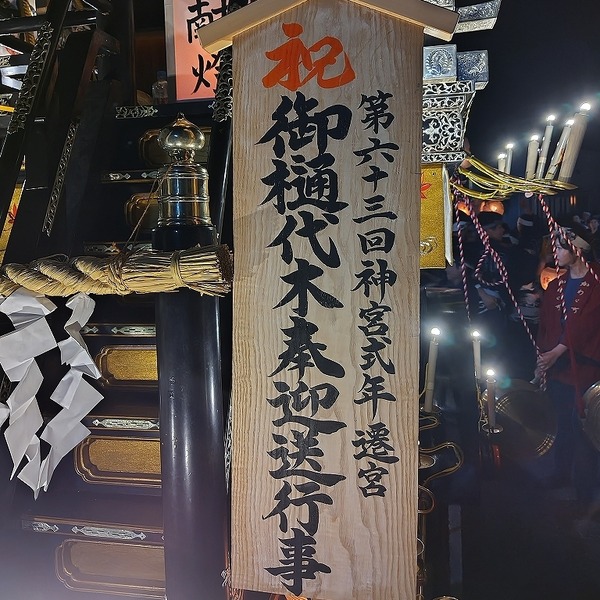 献燈
祝
第六十三回神宮式年遷宮
御樋代木奉迎送行事